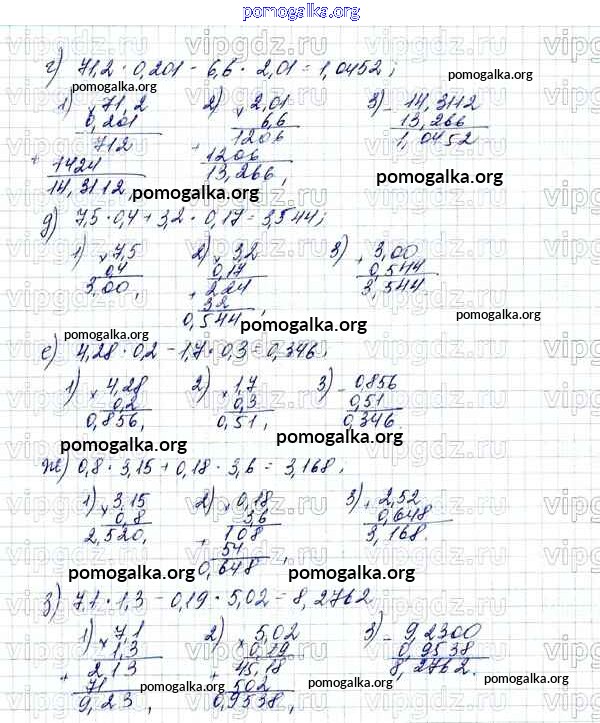 pomogalka.org
г) 71,2 · 0,201 - 6,6 · 2,01 = 1,0452;
pomogalka.org
1) × 71,2
0,201
712
+ 1424
14,3112,
2) × 2,01
6,6
1206
+ 1206
13,266,
3) - 14,3112
13,266
1,0452
pomogalka.org
pomogalka.org
д) 7,5 · 0,4 + 3,2 · 0,17 = 3,544;
pomogalka.org
1) × 7,5
0,4
3,00,
2) × 3,2
0,17
+ 224
32
0,544,
3) + 3,00
0,544
3,544
pomogalka.org
pomogalka.org
е) 4,28 · 0,2 - 1,7 · 0,3 = 0,346,
1) × 4,28
0,2
0,856,
2) × 1,7
0,3
0,51,
3) - 0,856
0,51
0,346
pomogalka.org
ж) 0,8 · 3,15 + 0,18 · 3,6 = 3,168,
pomogalka.org
1) × 3,15
0,8
2,520,
2) × 0,18
3,6
+ 108
54
0,648,
3) + 2,52
0,648
3,168.
pomogalka.org
pomogalka.org
з) 7,1 · 1,3 - 0,19 · 5,02 = 8,2762
1) × 7,1
1,3
+ 213
71
9,23,
2) × 5,02
0,19
+ 45,18
502
0,9538,
3) - 9,2300
0,9538
8,2762.
pomogalka.org
pomogalka.org
vipgdz.ru